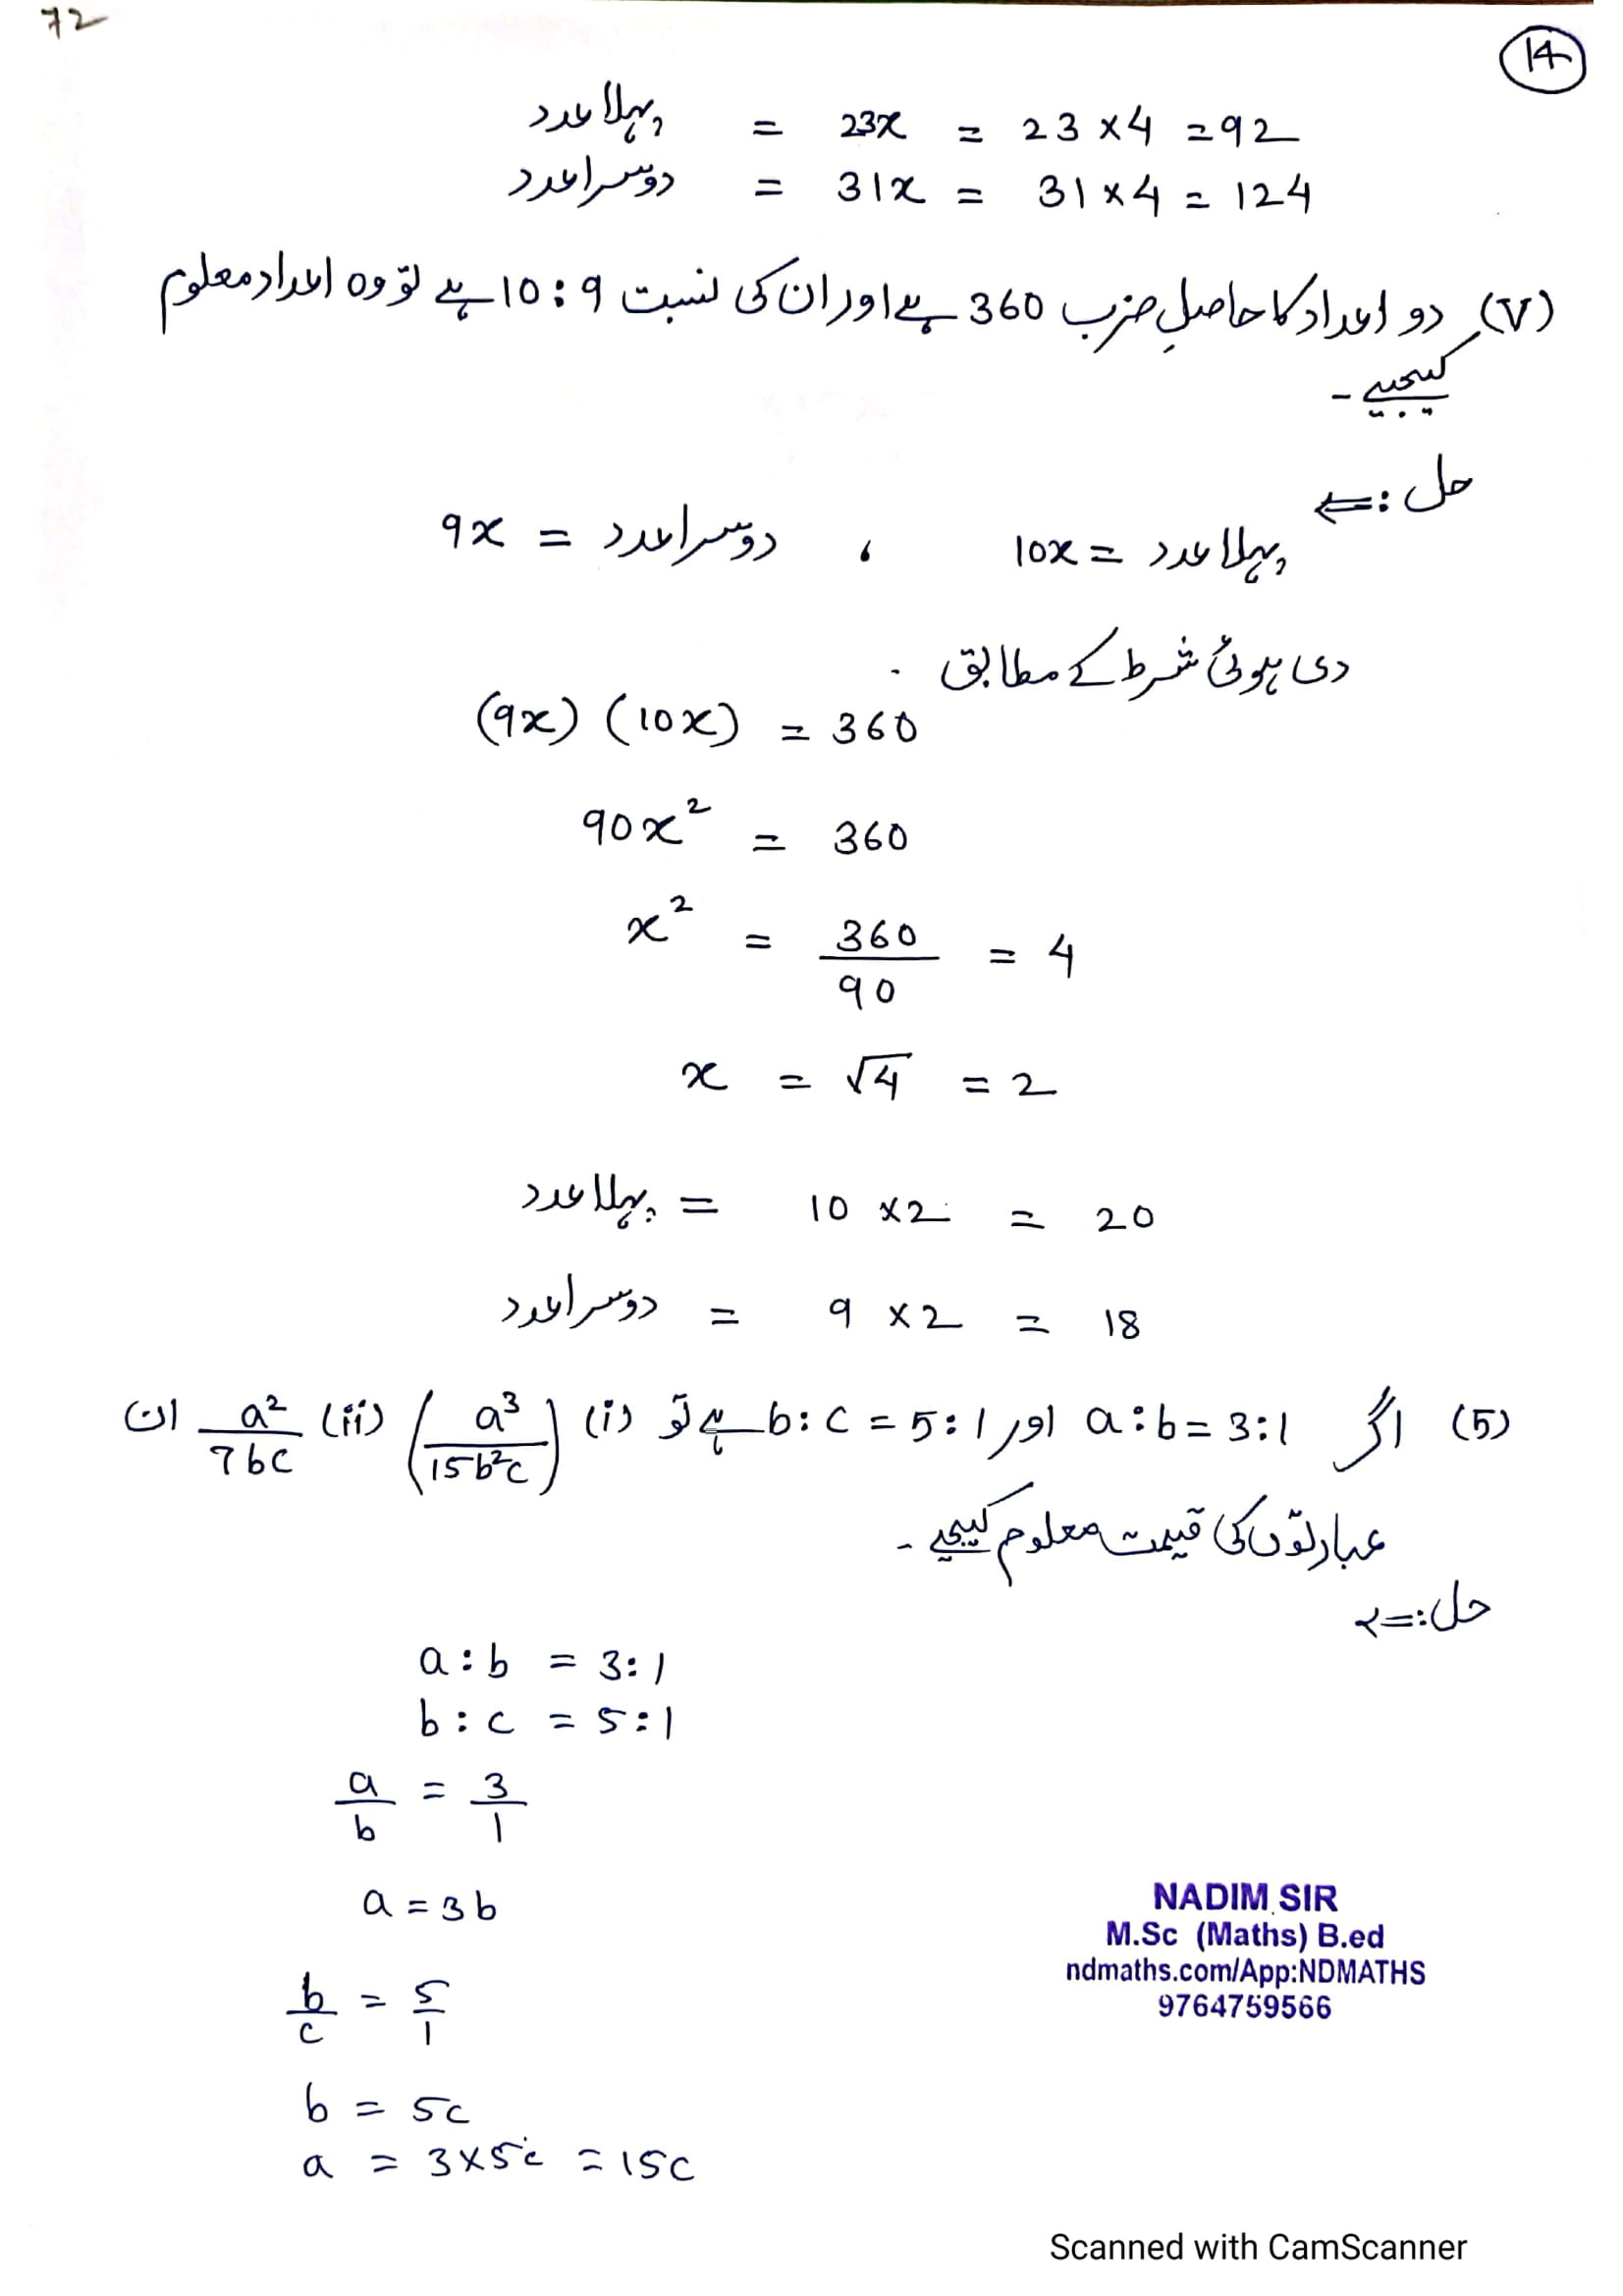 72
14
پہلا عدد = 23x = 23 × 4 = 92
دوسرا عدد = 31x = 31 × 4 = 124
(V) دو اعداد کا حاصلِ ضرب 360 ہے اور ان کی نسبت 10:9 ہے تو وہ اعداد معلوم
کیجیے۔
حل :⇐
پہلا عدد = 10x ، دوسرا عدد = 9x
دی ہوئی شرط کے مطابق
(9x) (10x) = 360
90x² = 360
x² = 360/90 = 4
x = √4 = 2
پہلا عدد = 10 × 2 = 20
دوسرا عدد = 9 × 2 = 18
(5) اگر a:b = 3:1 اور b:c = 5:1 ہے تو (i) (a³/15b²c) (ii) a²/7bc ان
عبارتوں کی قیمت معلوم کیجیے۔
حل :⇐
a : b = 3:1
b : c = 5:1
a/b = 3/1
a = 3b
b/c = 5/1
b = 5c
a = 3×5c = 15c
NADIM SIR
M.Sc (Maths) B.ed
ndmaths.com/App:NDMATHS
9764759566
Scanned with CamScanner